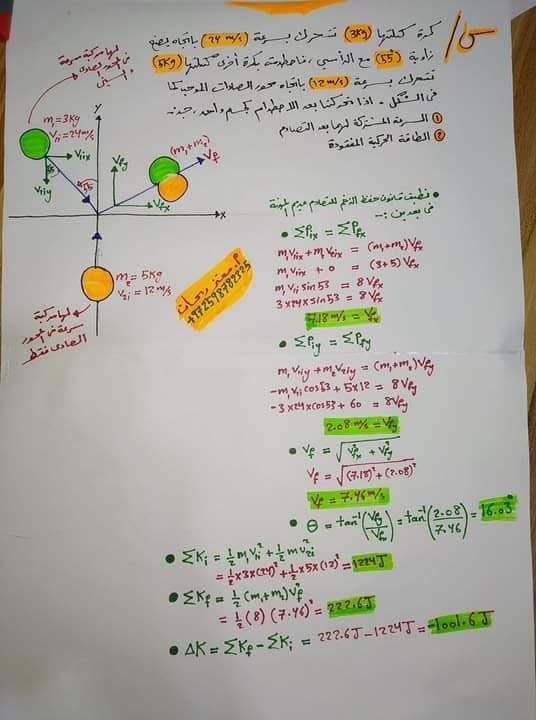 س/ كرة كتلتها (3Kg) تتحرك بسرعة (24 m/s) باتجاه يصنع
زاوية (55°) مع الرأسي فاصطدمت بكرة أخرى كتلتها (5Kg)
تتحرك بسرعة (12 m/s) باتجاه محور الصادات الموجب كما
في الشكل. اذا تحركتا بعد الاصطدام كجسم واحد جد:
① السرعة المشتركة لهما بعد التصادم
② الطاقة الحركية المفقودة
لها مركبة سرعة
في المحور الصادي
والسيني
m₁=3Kg
V₁ᵢ=24m/s
V₁ᵢx
V₁ᵢy
55
55
y
x
Vfy
Vfx
(m₁+m₂)
Vf
m₂=5Kg
V₂ᵢ=12m/s
لها مركبة
سرعة في المحور
الصادي فقط
نطبق قانون حفظ الزخم للتصادم عديم المرونة
في بعدين :-
• ΣPix = ΣPfx
m₁V₁ix + m₂V₂ix = (m₁+m₂)Vfx
m₁V₁ix + 0 = (3+5)Vfx
m₁V₁i sin53 = 8Vfx
3×24×sin53 = 8Vfx
7.18 m/s = Vfx
• ΣPiy = ΣPfy
m₁V₁iy + m₂V₂iy = (m₁+m₂)Vfy
-m₁V₁i cos53 + 5×12 = 8Vfy
-3×24×cos53 + 60 = 8Vfy
2.08 m/s = Vfy
• Vf = √(V²fx + V²fy)
Vf = √((7.18)² + (2.08)²)
Vf = 7.46 m/s
• Θ = tan⁻¹(Vfy/Vfx) = tan⁻¹(2.08/7.46) = 16.03°
• ΣKi = ½m₁V²₁i + ½mV²₂i
= ½×3×(24)² + ½×5×(12)² = 1224J
• ΣKf = ½(m₁+m₂)V²f
= ½(8)(7.46)² = 222.6J
• ΔK = ΣKf - ΣKi = 222.6J - 1224J = -1001.6J